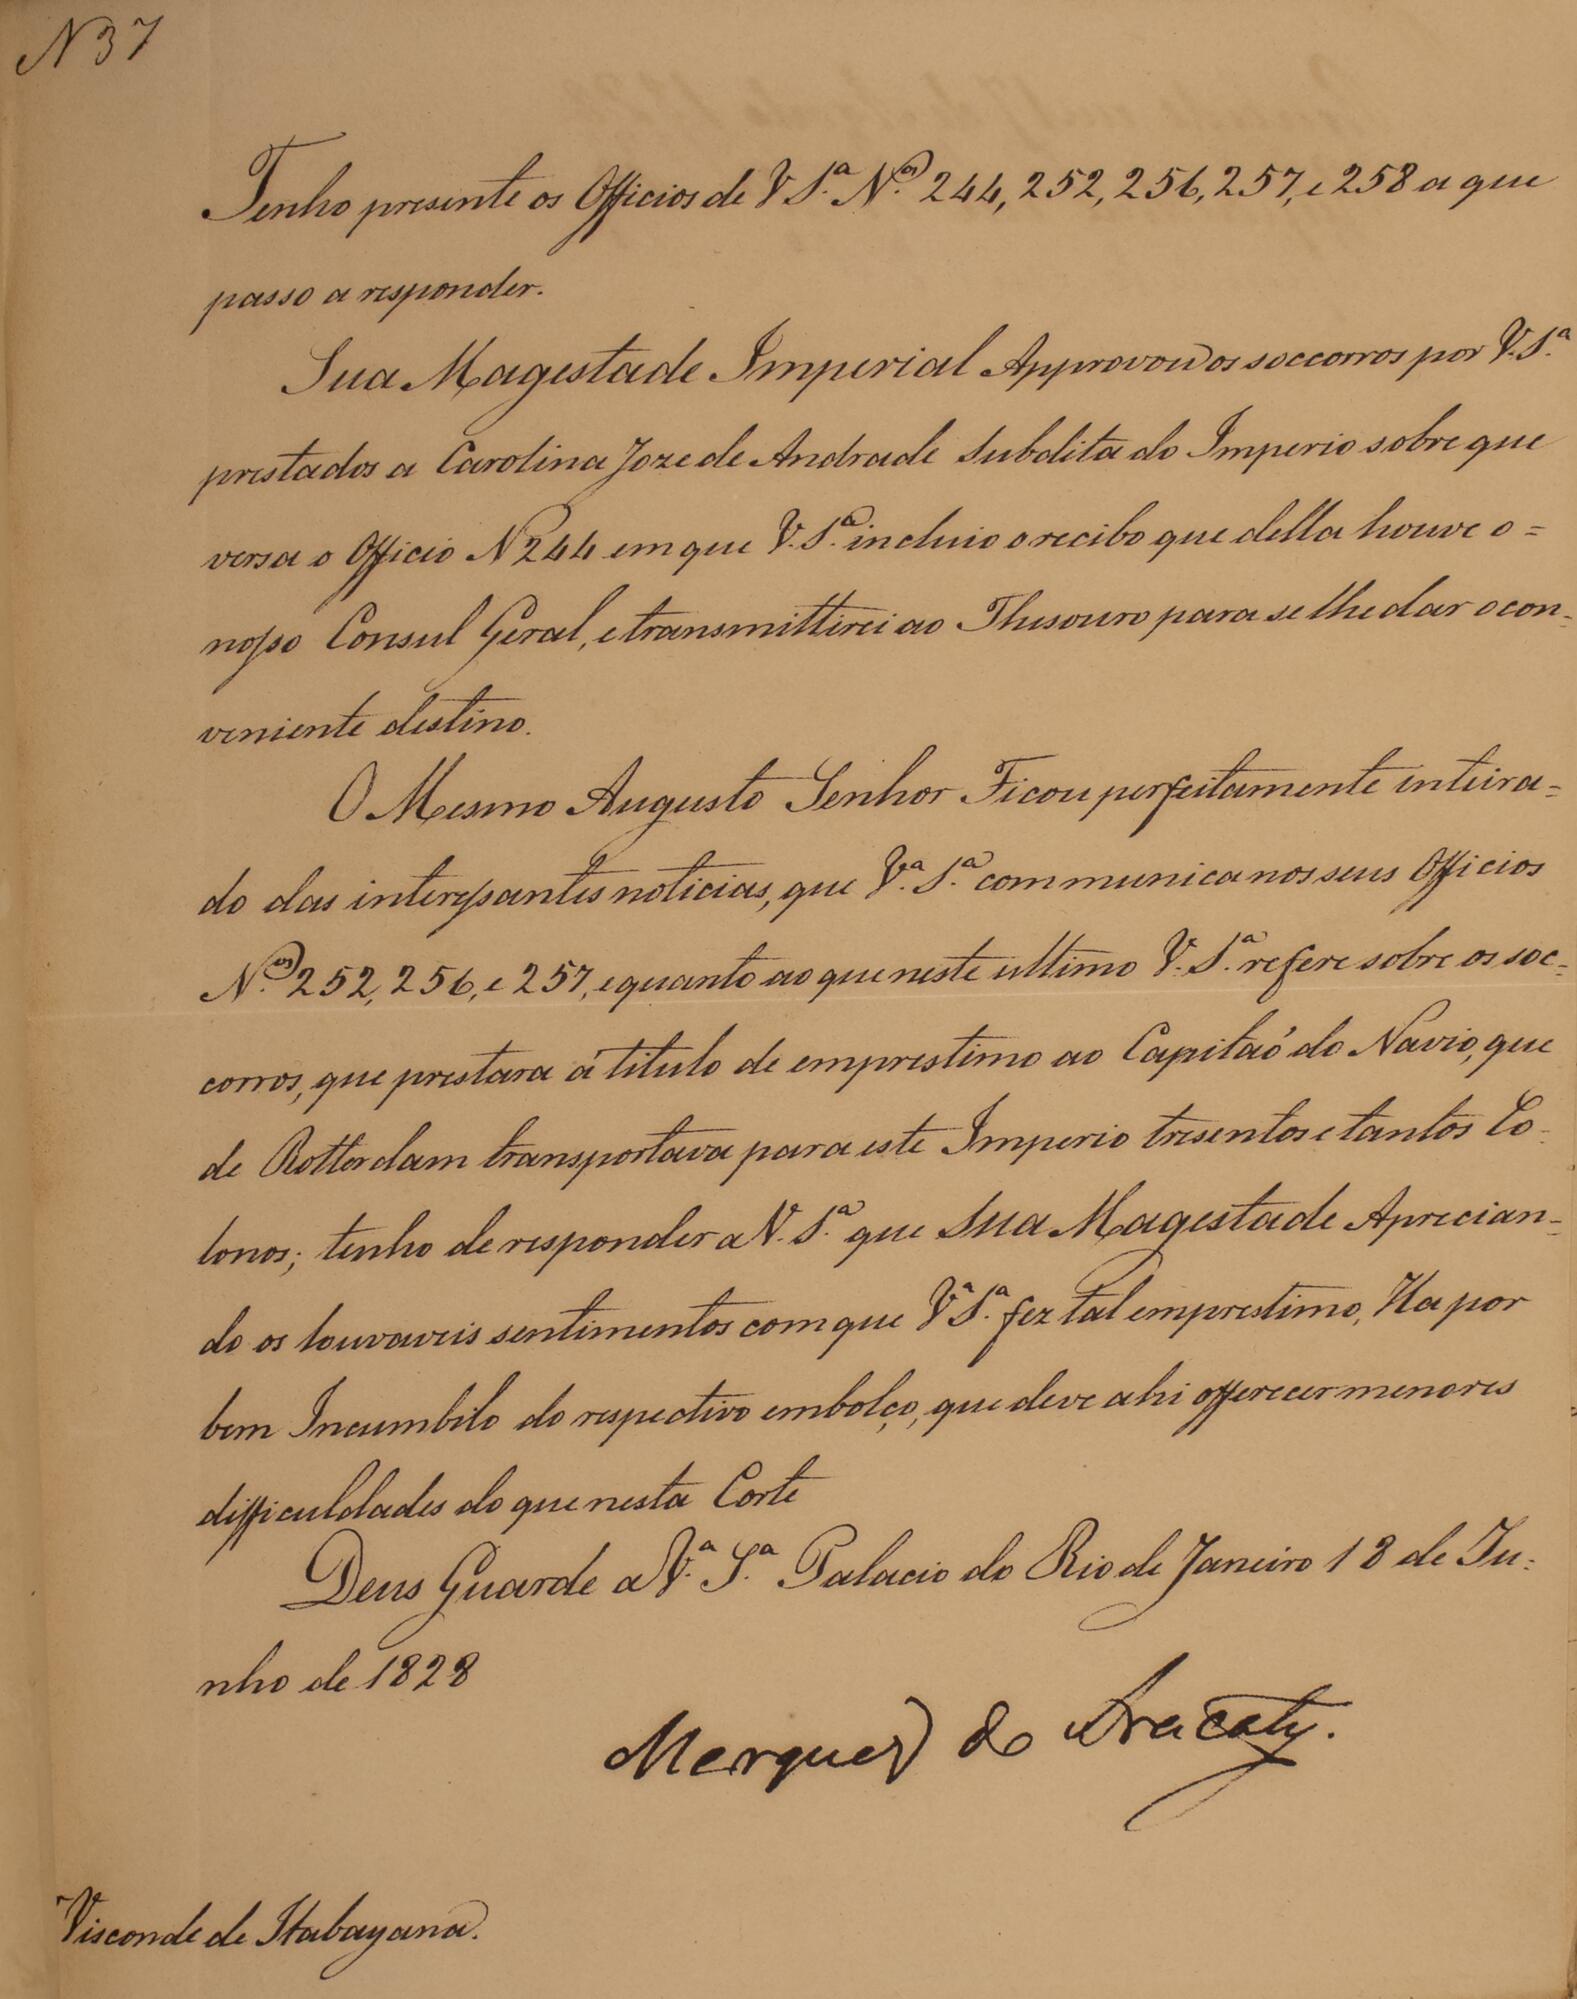 N 37
Tenho presente os Officios de V S.ª N.os 244, 252, 256, 257, e 258 a que
passo a responder.
Sua Magestade Imperial Approvou os soccorros por V. S.ª
prestados a Carolina Joze de Andrade Subdita do Imperio sobre que
versa o Officio N 244 em que V. S.ª incluio o recibo que della houve o=
nosso Consul Geral, e transmittirei ao Thesouro para se lhe dar o con-
veniente destino.
O Mesmo Augusto Senhor Ficou perfeitamente inteira=
do das interessantes noticias, que V.ª S.ª communica nos seus Officios
N.os 252, 256, e 257, e quanto ao que neste ultimo V. S.ª refere sobre os soc-
corros, que prestara á titulo de emprestimo ao Capitaõ do Navio, que
de Rotterdam transportava para este Imperio tresentos e tantos Co-
lonos; tenho de responder a V. S.ª que Sua Magestade Aprecian-
do os louvaveis sentimentos com que V.ª S.ª fez tal emprestimo, Ha por
bem Incumbilo do respectivo embolço, que deve ahi offerecer menores
difficuldades do que nesta Corte
Deus Guarde a V.ª S.ª Palacio do Rio de Janeiro 18 de Ju-
nho de 1828
Marquez de Aracaty.
Visconde de Itabayana.